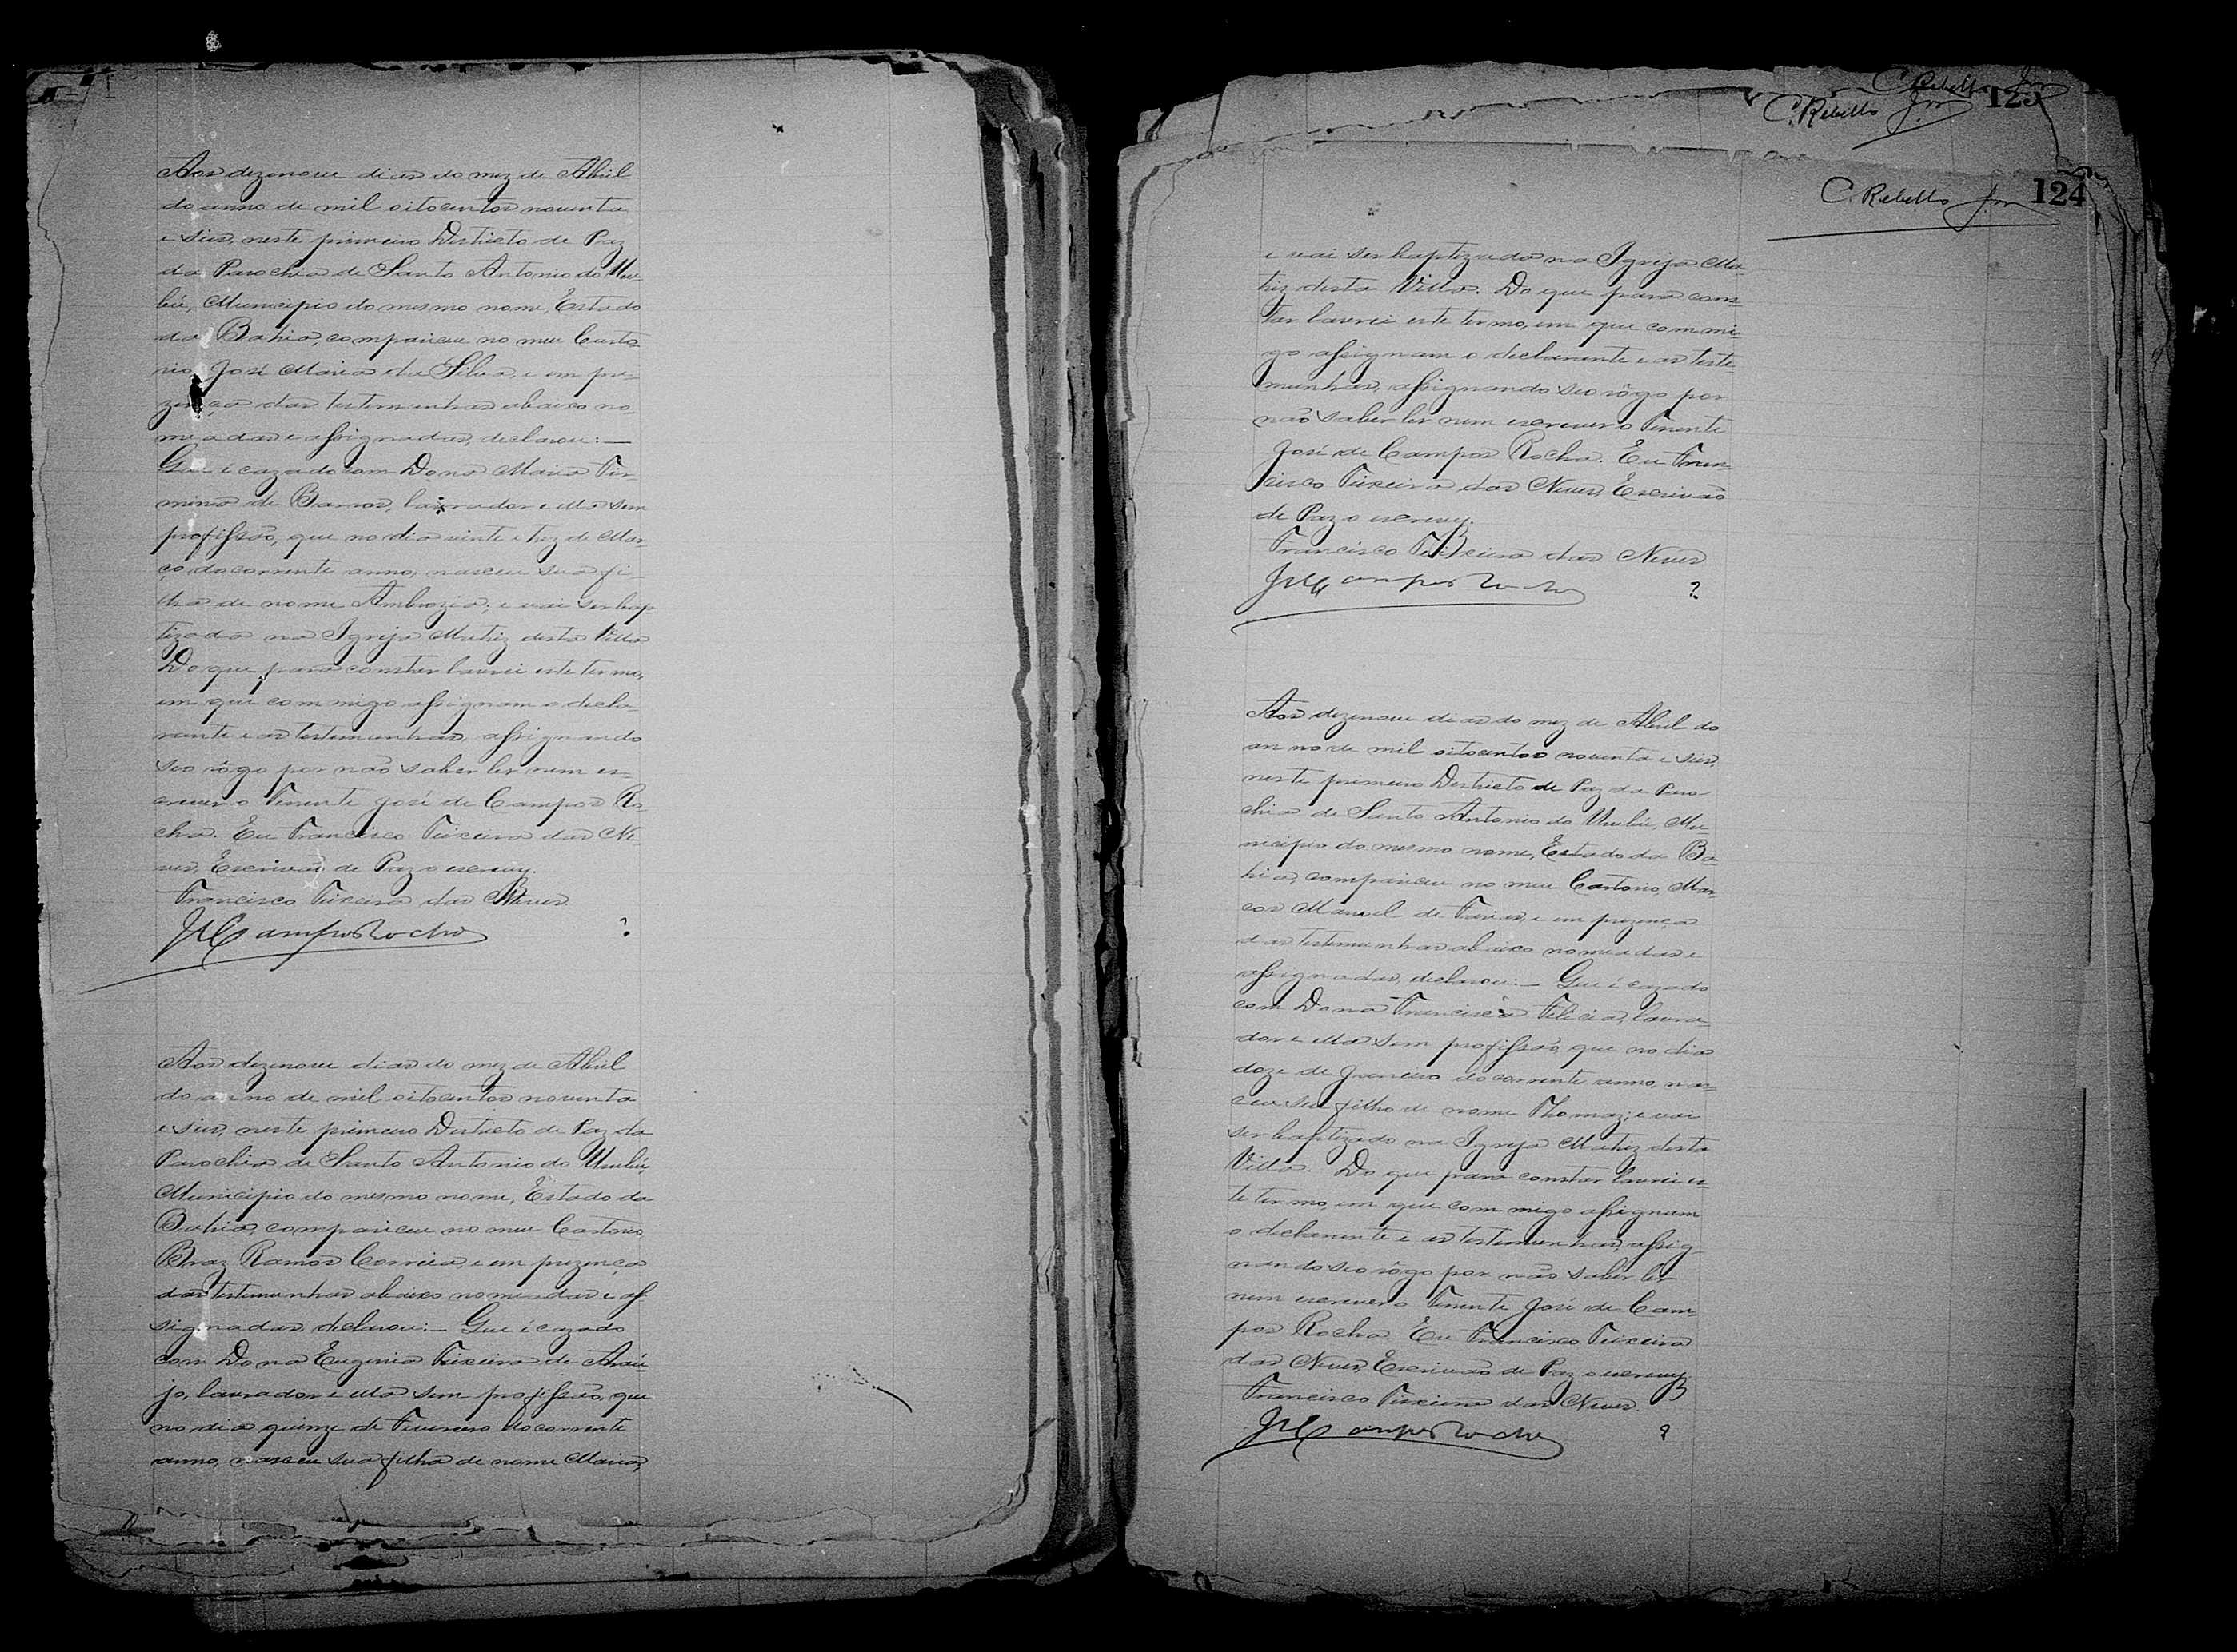 Aos dezenove dias do mez de Abril
do anno de mil oitocentos noventa
e seis, neste primeiro Districto de Paz
da Parochia de Santo Antonio do Uru-
bú, Municipio do mesmo nome, Estado
da Bahia, compareceu no meu Carto-
rio José Maria da Silva, e em pre-
zença das testemunhas abaixo no-
meadas e assignadas, declarou:—
Que é cazado com Dona Maria Fir-
mina de Barros, lavrador e ella sem
profissão, que no dia vinte e trez de Mar-
ço do corrente anno, nasceu sua fi-
lha de nome Ambrozia; e vai ser bap
tizada na Igreja Matriz desta Villa
Do que para constar lavrei este termo,
em que commigo assignam o decla-
rante e as testemunhas, assignando
seo rôgo por não saber ler nem es-
crever o Tenente José de Campos Ro-
cha. Eu Francisco Teixeira das Ne-
ves, Escrivão de Paz o escrevy.
Francisco Teixeira das Neves
JCamposRocha
Aos dezenove dias do mez de Abril
do anno de mil oitocentos noventa
e seis, neste primeiro Districto de Paz da
Parochia de Santo Antonio do Urubú,
Municipio do mesmo nome, Estado da
Bahia, compareceu no meu Cartorio
Braz Ramos Correia, e em prezença
das testemunhas abaixo nomeadas e as
signadas, declarou:— Que é cazado
com Dona Eugenia Teixeira de Araú-
jo, lavrador e ella sem profissão, que
no dia quinze de Fevereiro do corrente
anno, nasceu sua filha de nome Maria,
C. Rebello Jnr 125
C. Rebello Jnr
C. Rebello Jnr 124
e vai ser baptizada na Igreja Ma-
triz desta Villa. Do que para cons-
tar lavrei este termo, em que commi-
go assignam o declarante e as teste-
munhas, assignando seo rôgo por
não saber ler nem escrever o Tenente
José de Campos Rocha. Eu Fran-
cisco Teixeira das Neves, Escrivão
de Paz o escrevy.
Francisco Teixeira das Neves
JCamposRocha
Aos dezenove dias do mez de Abril do
anno de mil oitocentos noventa e seis,
neste primeiro Districto de Paz da Paro-
chia de Santo Antonio do Urubú, Mu-
nicipio do mesmo nome, Estado da Ba-
hia, compareceu no meu Cartorio, Mar-
cos Manoel de Farias, e em prezença
das testemunhas abaixo nomeadas e
assignadas, declarou:— Que é cazado
com Dona Francisca Felicia, lavra-
dor e ella sem profissão, que no dia
doze de Janeiro do corrente anno, nas-
ceu seu filho de nome Thomaz; e vai
ser baptizado na Igreja Matriz desta
Villa. Do que para constar lavrei es-
te termo, em que commigo assignam
o declarante e as testemunhas, assig-
nando seo rôgo por não saber ler
nem escrever o Tenente José de Cam-
pos Rocha. Eu Francisco Teixeira
das Neves, Escrivão de Paz o escrevy.
Francisco Teixeira das Neves.
JCamposRocha